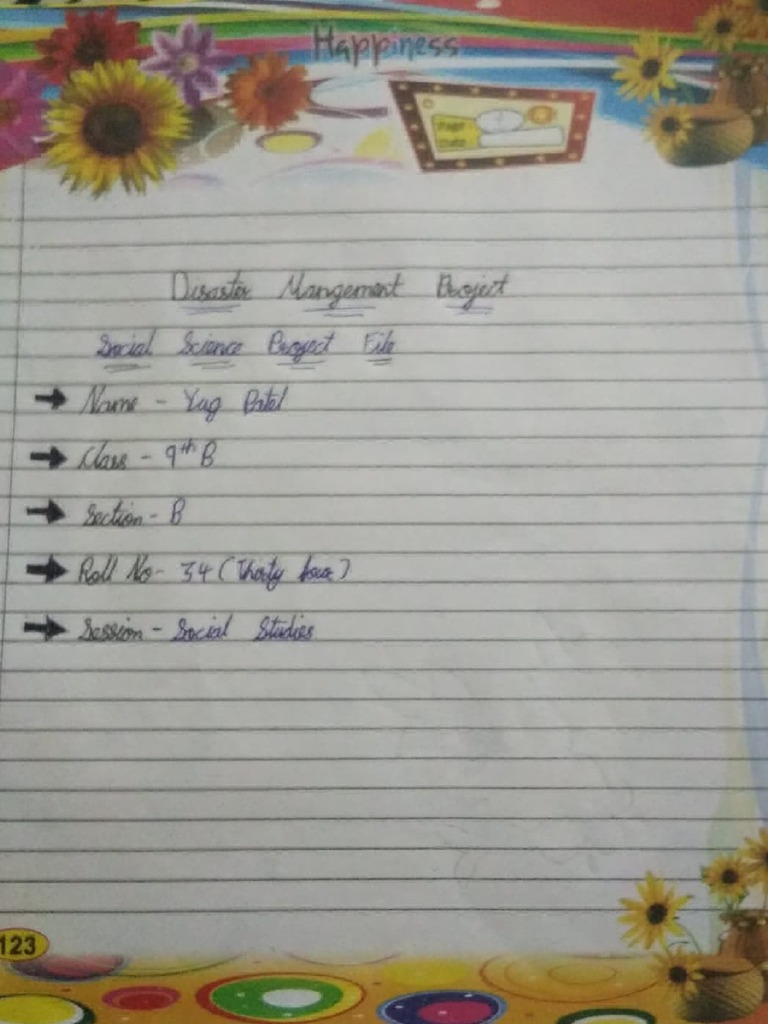 Happiness
Disaster Mangement Project
Social Science Project File
➡ Name - Yug Patel
➡ Class - 9th B
➡ Section - B
➡ Roll No - 34 (Thirty four)
➡ Session - Social Studies
123